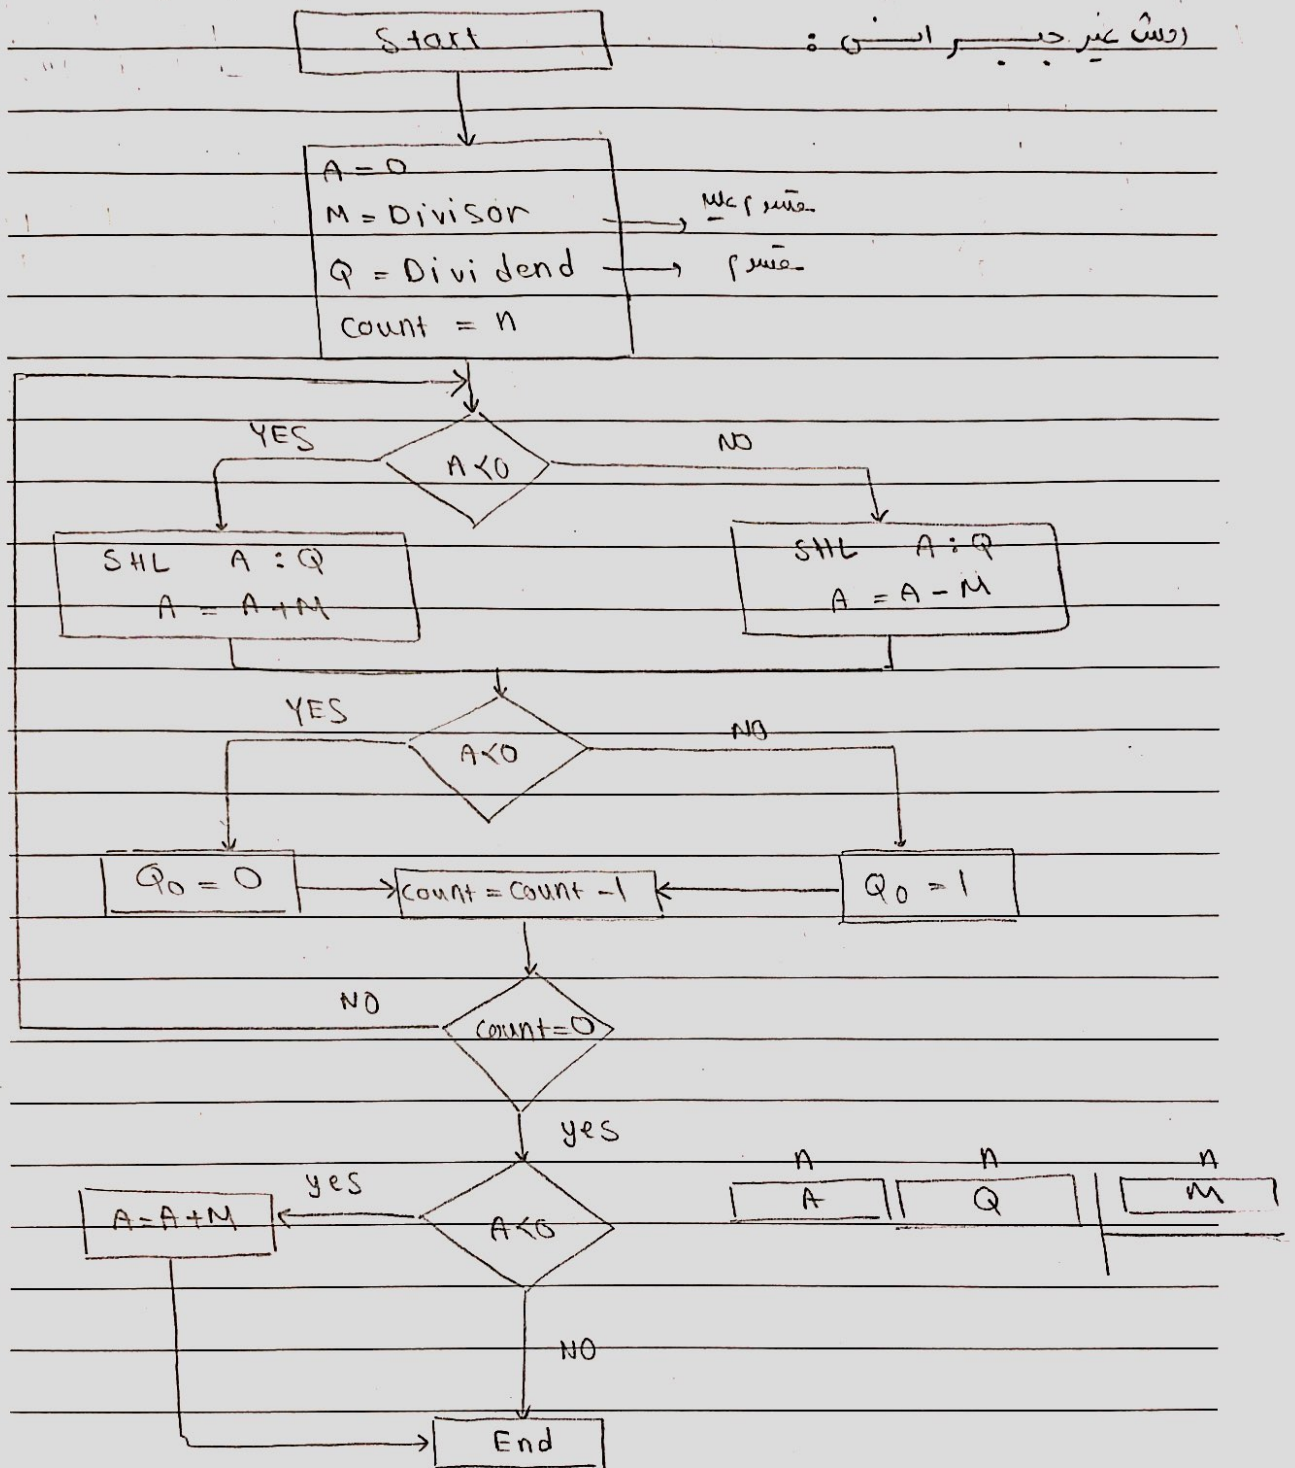 روش غیر جبرانی :
Start
A = 0
M = Divisor → مقسوم علیه
Q = Dividend → مقسوم
Count = n
A<0
YES
NO
SHL A : Q
A = A + M
SHL A : Q
A = A - M
A<0
YES
NO
Q0 = 0
Count = Count - 1
Q0 = 1
NO
Count = 0
yes
n n n
A Q M
yes
A = A + M
A<0
NO
End